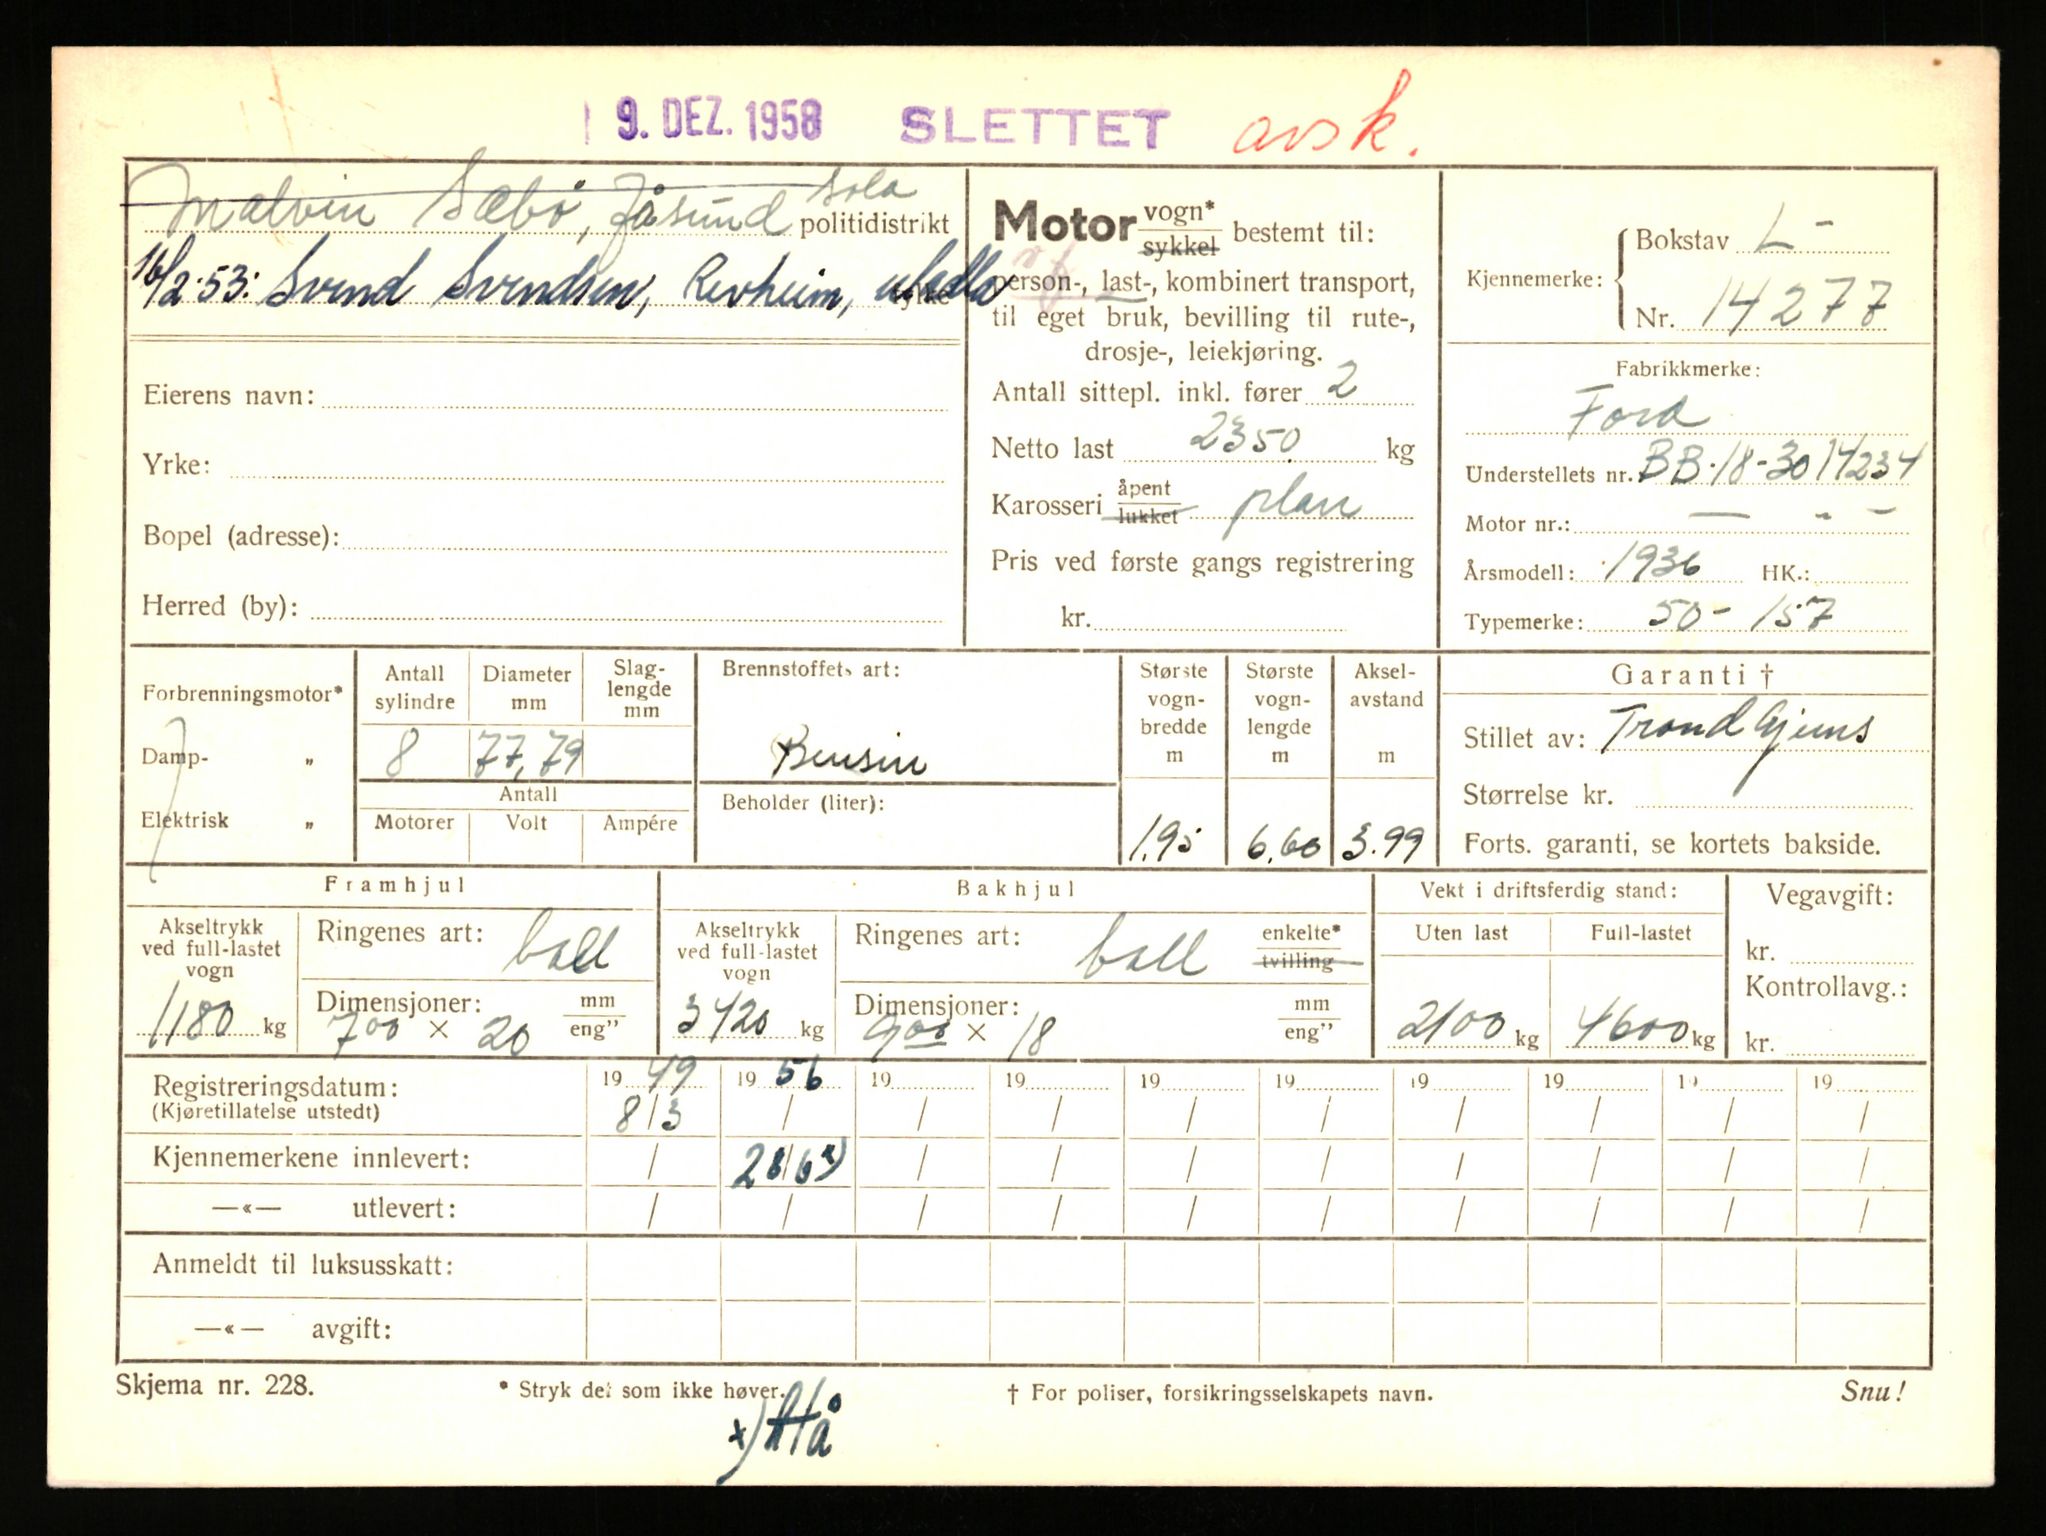 9. DEZ. 1958 SLETTET avsk.
Malvin Sæbø, Jåsund Sola politidistrikt
16/2-53: Svend Svendsen, Revheim, Madla
Eierens navn:
Yrke:
Bopel (adresse):
Herred (by):
Motor vogn* sykkel bestemt til:
person-, last-, kombinert transport,
til eget bruk, bevilling til rute-,
drosje-, leiekjøring.
Antall sittepl. inkl. fører 2
Netto last 2350 kg
Karosseri åpent lukket plan
Pris ved første gangs registrering
kr.
Kjennemerke:
Bokstav L-
Nr. 14277
Fabrikkmerke:
Ford
Understellets nr. BB-18-3014234
Motor nr.: — " —
Årsmodell: 1936 HK.:
Typemerke: 50-157
Forbrenningsmotor*
Damp- "
Elektrisk "
Antall sylindre
Diameter mm
Slag-lengde mm
8 77,79
Antall
Motorer Volt Ampére
Brennstoffets art:
Bensin
Beholder (liter):
Største vogn-bredde m
1.95
Største vogn-lengde m
6.60
Aksel-avstand m
3.99
Garanti †
Stillet av: Trond Gjens
Størrelse kr.
Forts. garanti, se kortets bakside.
Framhjul
Akseltrykk ved full-lastet vogn
1180 kg
Ringenes art: ball
Dimensjoner: mm
7⁰⁰ × 20 eng"
Bakhjul
Akseltrykk ved full-lastet vogn
3420 kg
Ringenes art: ball enkelte* tvilling
Dimensjoner: mm
9⁰⁰ × 18 eng"
Vekt i driftsferdig stand:
Uten last Full-lastet
2100 kg 4600 kg
Vegavgift:
kr.
Kontrollavg.:
kr.
Registreringsdatum: 19 49 19 56 19 19 19 19 19 19 19 19
(Kjøretillatelse utstedt) 8/3 / / / / / / / / /
Kjennemerkene innlevert: / 28/6 x) / / / / / / / /
—«— utlevert: / / / / / / / / / /
Anmeldt til luksusskatt:
—«— avgift:
Skjema nr. 228. * Stryk det som ikke høver. † For poliser, forsikringsselskapets navn. Snu!
x)